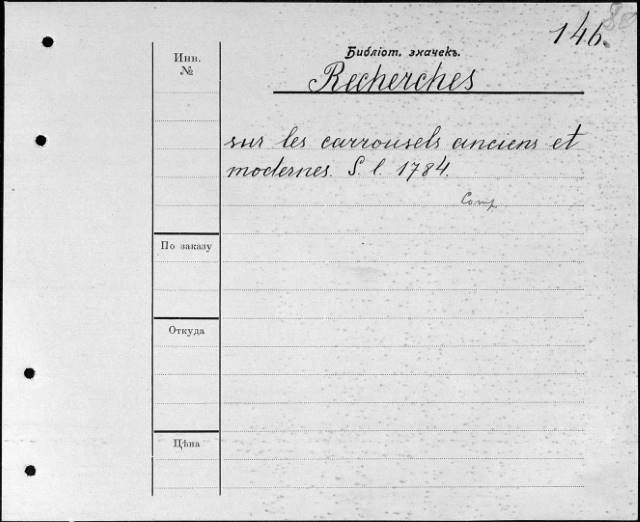 146.
Библіот. значекъ.
Инв.
№
Recherches
sur les carrousels anciens et
modernes. S. l. 1784.
Comp
По заказу
Откуда
Цѣна